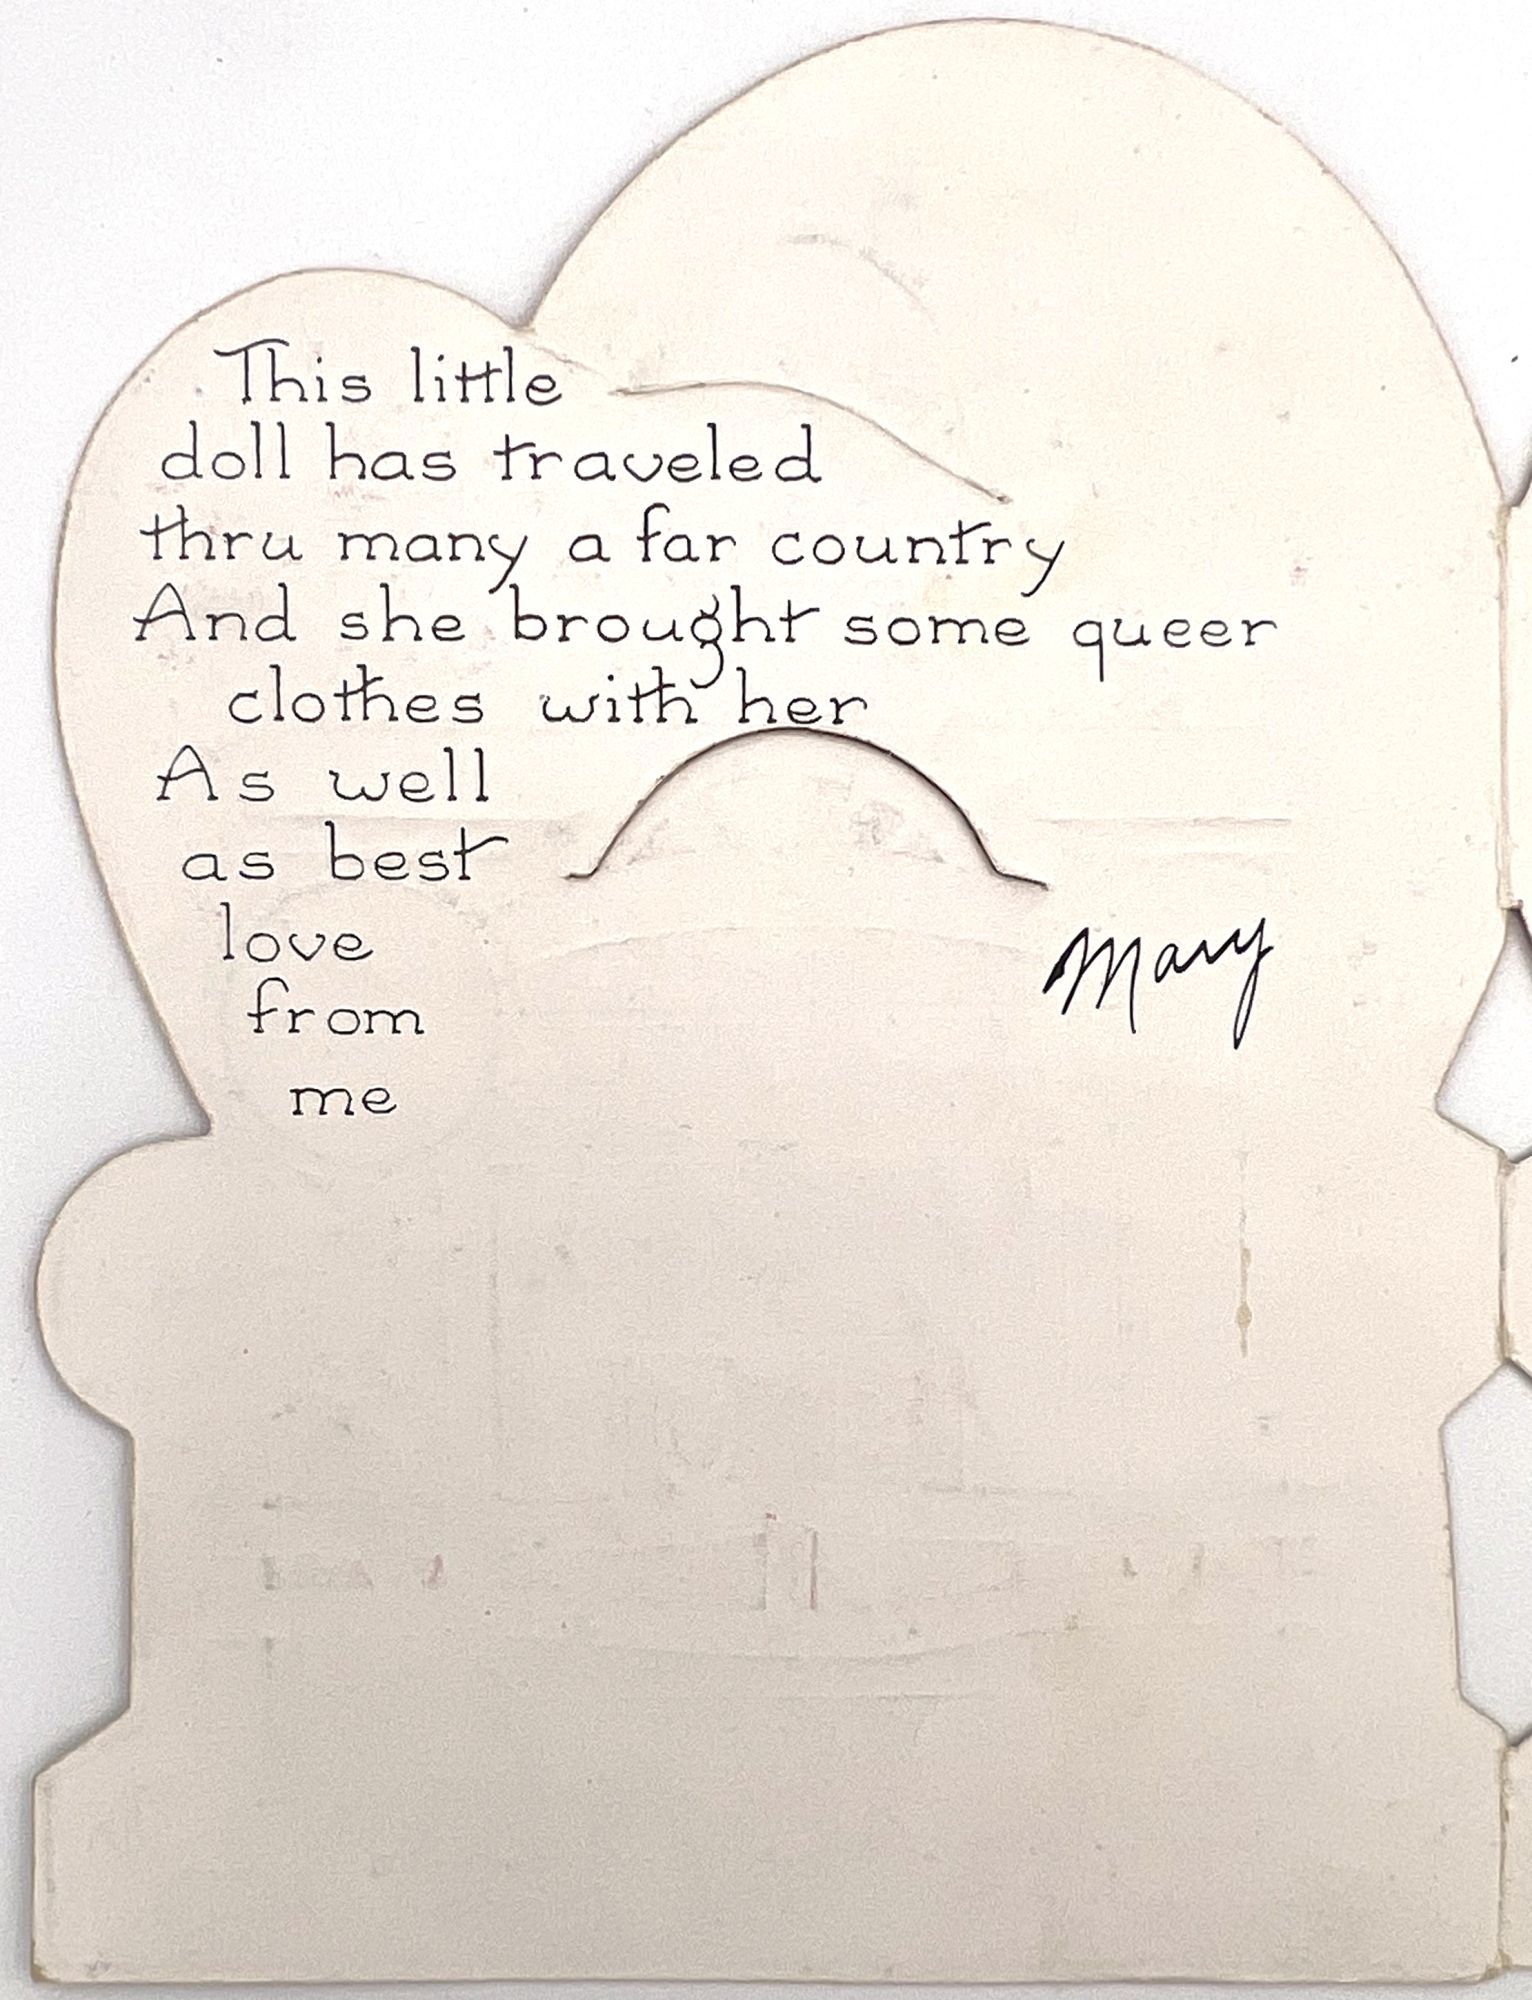 This little
doll has traveled
thru many a far country
And she brought some queer
clothes with her
As well
as best
love
from
me
Mary